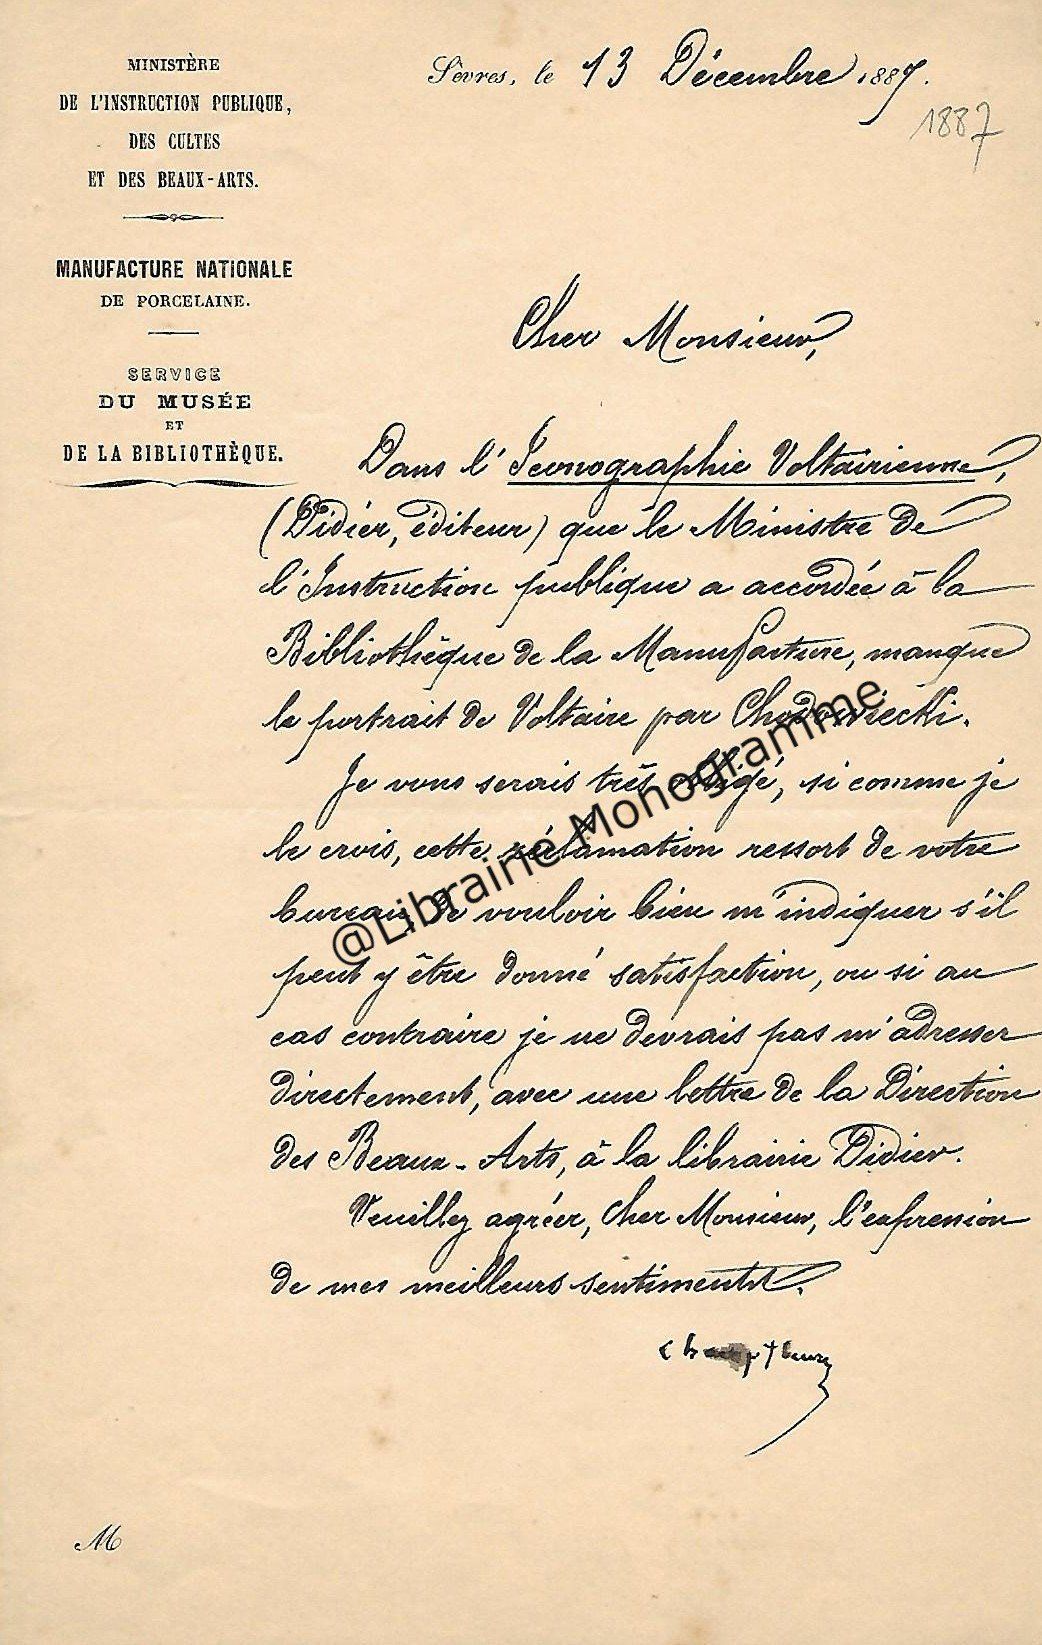 MINISTÈRE
DE L'INSTRUCTION PUBLIQUE,
DES CULTES
ET DES BEAUX-ARTS.
MANUFACTURE NATIONALE
DE PORCELAINE.
SERVICE
DU MUSÉE
ET
DE LA BIBLIOTHÈQUE.
Sèvres, le 13 Décembre 1887.
1887
Cher Monsieur,
Dans l'Iconographie Voltairienne,
(Didier, éditeur) que le Ministre de
l'Instruction publique a accordée à la
Bibliothèque de la Manufacture, manque
le portrait de Voltaire par Chodowiecki.
Je vous serais très obligé, si comme je
le crois, cette réclamation ressort de votre
bureau, de vouloir bien m'indiquer s'il
peut y être donné satisfaction, ou si au
cas contraire je ne devrais pas m'adresser
directement, avec une lettre de la Direction
des Beaux-Arts, à la librairie Didier.
Veuillez agréer, Cher Monsieur, l'expression
de mes meilleurs sentiments.
Champfleury
M
@Librairie Monogramme